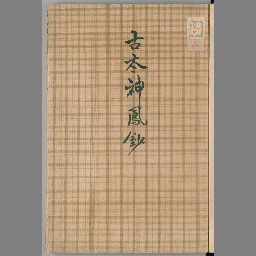 古本神鳳鈔